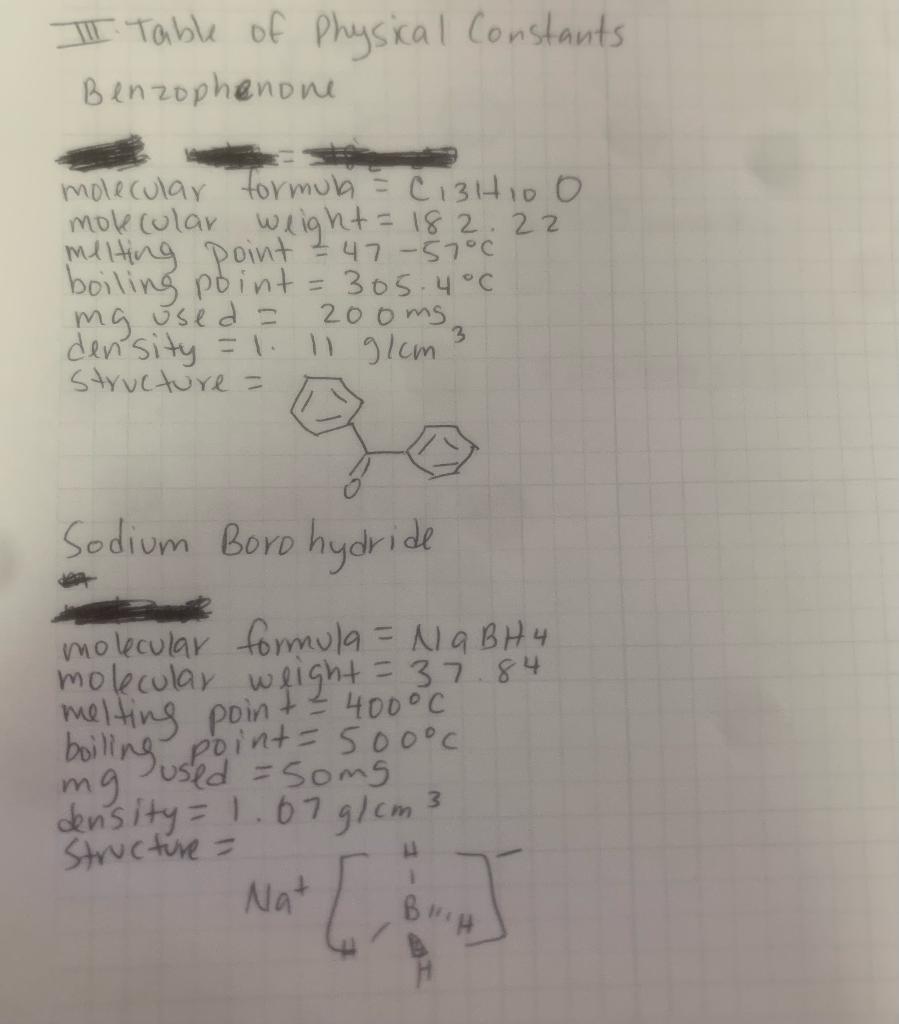 III. Table of Physical Constants
Benzophenone
=
molecular formula = C13H10 O
molecular weight = 182.22
melting point = 47-57°C
boiling point = 305.4°C
mg used = 200mg
density = 1.11 g/cm3
Structure =
O
Sodium Borohydride
molecular formula = NaBH4
molecular weight = 37.84
melting point = 400°C
boiling point = 500°C
mg used = 50mg
density = 1.07 g/cm3
Structure =
H
Na+ [ B H ]-
H
H